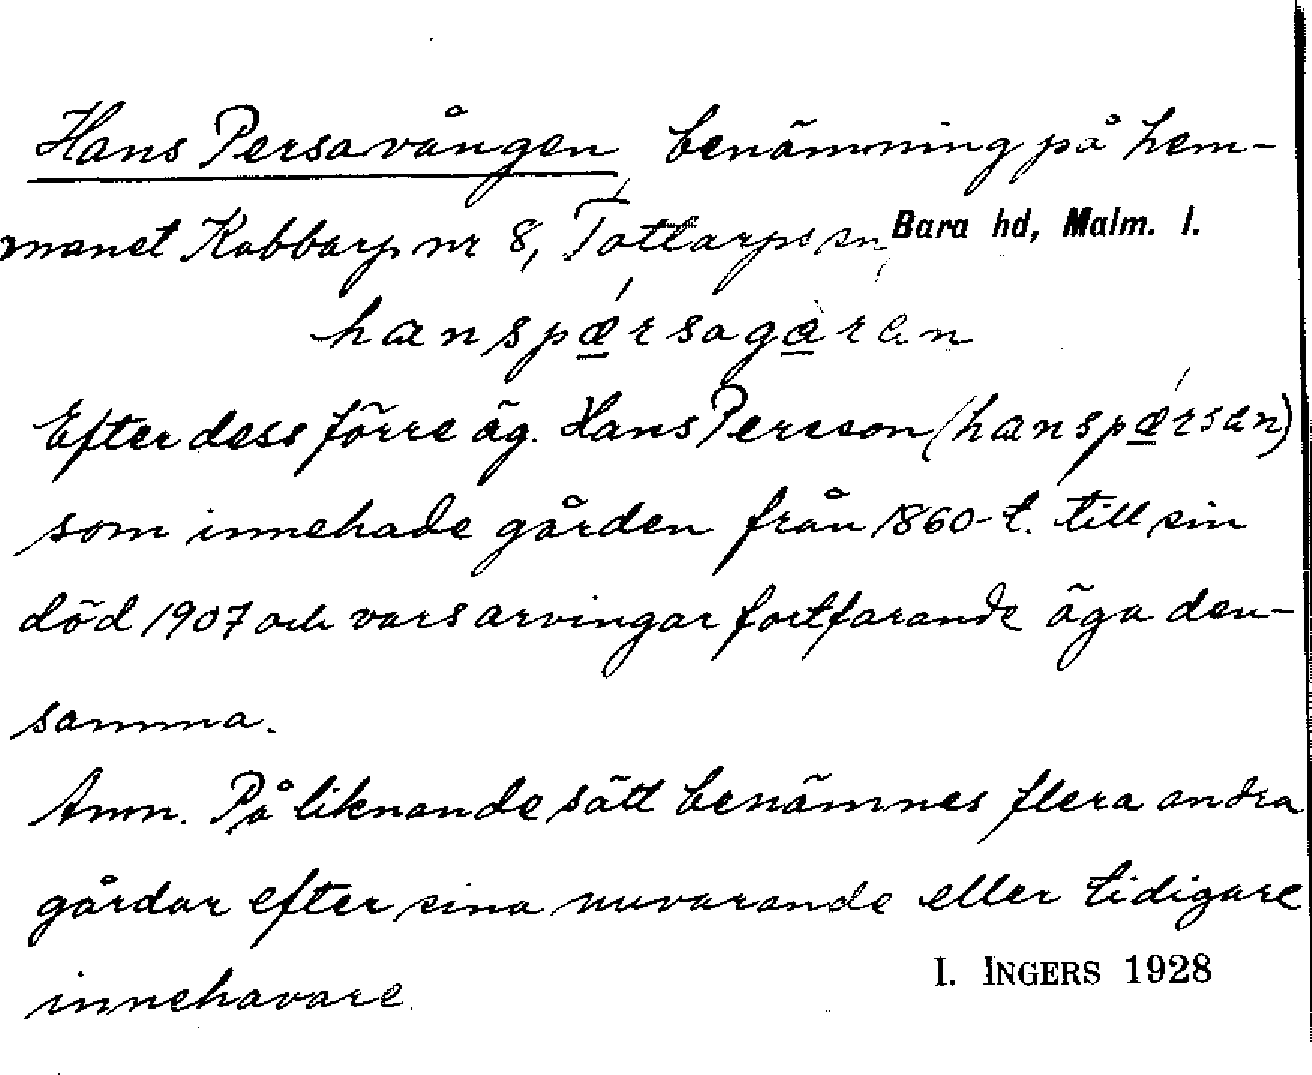 Hans Persavången benämning på hem-
manet Kabbarp nr 8, Tottarps sn, Bara hd, Malm. l.
hanspǽrsagaran
Efter dess förre äg. Hans Persson (hanspǽrsan)
som innehade gården från 1860-t. till sin
död 1907 och vars arvingar fortfarande äga den-
samma.
Anm. På liknande sätt benämnes flera andra
gårdar efter sina nuvarande eller tidigare
innehavare.
I. INGERS 1928